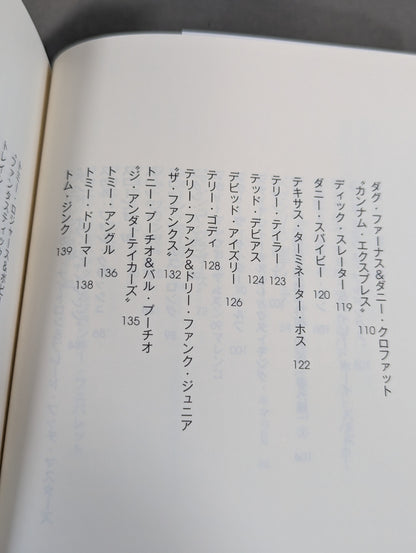 ダグ・ファーナス&ダニー・クロファット
“カンナム・エクスプレス” 110
ディック・スレーター 119
ダニー・スパイビー 120
テキサス・ターミネーター・ホス 122
テリー・テイラー 123
テッド・デビアス 124
デビッド・アイズリー 126
テリー・ゴディ 128
テリー・ファンク&ドリー・ファンク・ジュニア
“ザ・ファンクス” 132
トニー・プーチオ&バル・プーチオ
“ジ・アンダーテイカーズ” 135
トミー・アングル 136
トミー・ドリーマー 138
トム・ジンク 139